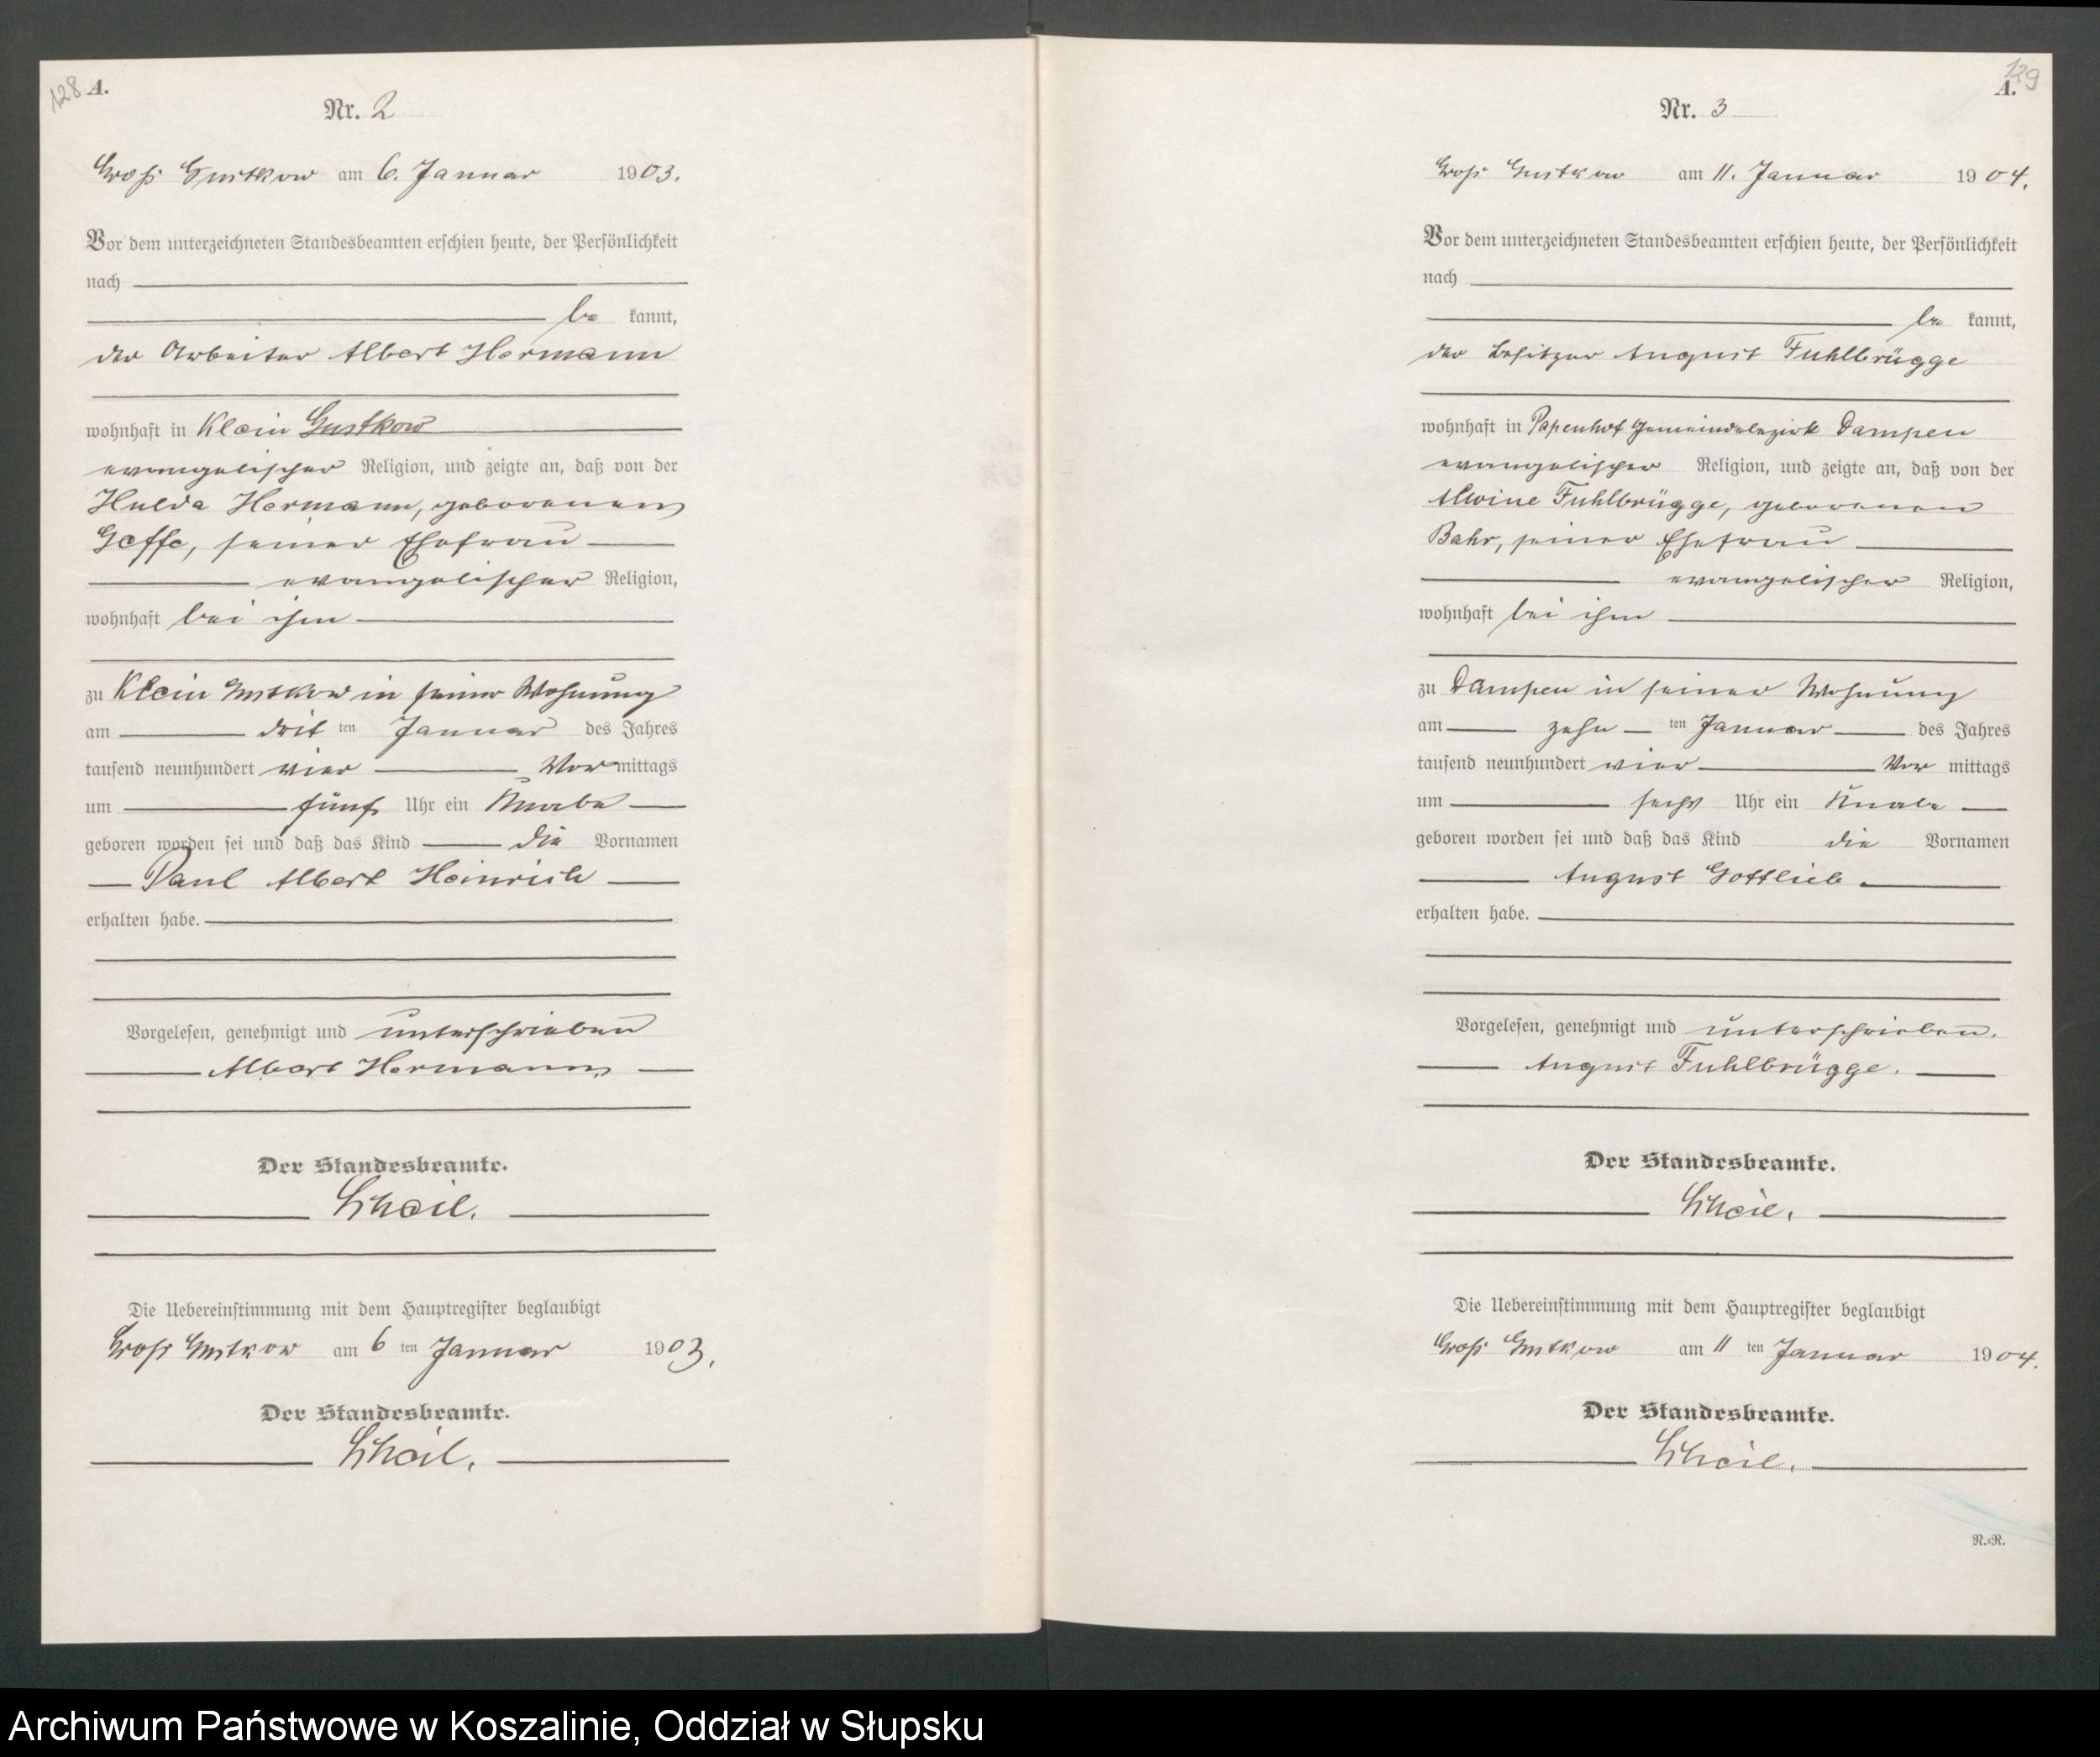 128 A.
Nr. 2
Groß Gustkow am 6. Januar 1903.
Vor dem unterzeichneten Standesbeamten erschien heute, der Persönlichkeit
nach
be kannt,
der Arbeiter Albert Hermann
wohnhaft in Klein Gustkow
evangelischer Religion, und zeigte an, daß von der
Hulda Hermann, geborenen
Geffe, seiner Ehefrau
evangelischer Religion,
wohnhaft bei ihm
zu Klein Gustkow in seiner Wohnung
am drit ten Januar des Jahres
tausend neunhundert vier Vor mittags
um fünf Uhr ein Knabe
geboren worden sei und daß das Kind die Vornamen
Paul Albert Heinrich
erhalten habe.
Vorgelesen, genehmigt und unterschrieben
Albert Hermann
Der Standesbeamte.
Die Uebereinstimmung mit dem Hauptregister beglaubigt
Groß Gustkow am 6 ten Januar 1903.
Der Standesbeamte.
129
A.
Nr. 3
Groß Gustkow am 11. Januar 1904.
Vor dem unterzeichneten Standesbeamten erschien heute, der Persönlichkeit
nach
be kannt,
der Besitzer August Fuhlbrügge
wohnhaft in Papenhof Gemeindebezirk Dampen
evangelischer Religion, und zeigte an, daß von der
Alwine Fuhlbrügge, geborenen
Bahr, seiner Ehefrau
evangelischer Religion,
wohnhaft bei ihm
zu Dampen in seiner Wohnung
am zehn ten Januar des Jahres
tausend neunhundert vier Vor mittags
um sechs Uhr ein Knabe
geboren worden sei und daß das Kind die Vornamen
August Gottlieb
erhalten habe.
Vorgelesen, genehmigt und unterschrieben.
August Fuhlbrügge.
Der Standesbeamte.
Die Uebereinstimmung mit dem Hauptregister beglaubigt
Groß Gustkow am 11 ten Januar 1904.
Der Standesbeamte.
N.=R.
Archiwum Państwowe w Koszalinie, Oddział w Słupsku